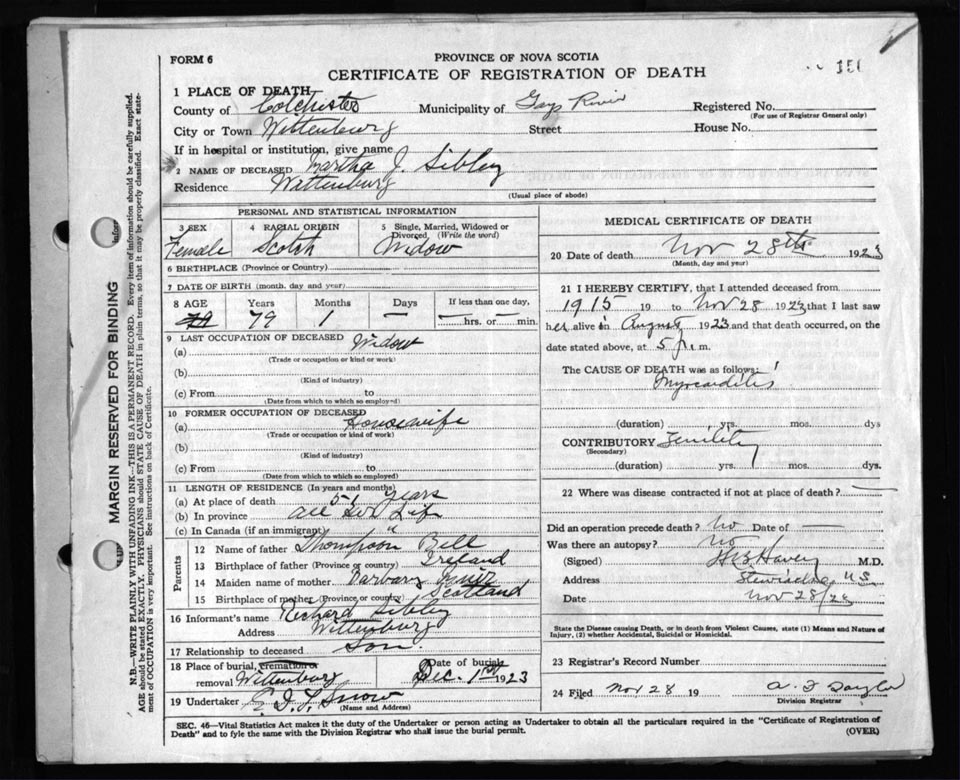 FORM 6
PROVINCE OF NOVA SCOTIA
CERTIFICATE OF REGISTRATION OF DEATH
151
1 PLACE OF DEATH
County of Colchester Municipality of Gays River Registered No.
(For use of Registrar General only)
City or Town Wittenburg Street House No.
If in hospital or institution, give name
2 NAME OF DECEASED Martha J. Sibley
Residence Wittenburg
(Usual place of abode)
PERSONAL AND STATISTICAL INFORMATION
3 SEX 4 RACIAL ORIGIN 5 Single, Married, Widowed or Divorced, (Write the word)
Female Scotch Widow
6 BIRTHPLACE (Province or Country)
7 DATE OF BIRTH (month, day and year)
8 AGE Years Months Days If less than one day,
79 79 1 — — hrs. or — min.
9 LAST OCCUPATION OF DECEASED
(a) Widow
(Trade or occupation or kind or work)
(b)
(Kind of industry)
(c) From to
(Date from which to which so employed)
10 FORMER OCCUPATION OF DECEASED
(a) Housewife
(Trade or occupation or kind of work)
(b)
(Kind of industry)
(c) From to
(Date from which to which so employed)
11 LENGTH OF RESIDENCE (In years and months)
(a) At place of death 51 years
(b) In province all her life
(c) In Canada (if an immigrant) "
Parents
12 Name of father Thompson Bell
13 Birthplace of father (Province or country) Ireland
14 Maiden name of mother Barbary
15 Birthplace of mother (Province or country) Scotland
16 Informant's name Richard Sibley
Address Wittenburg
17 Relationship to deceased Son
18 Place of burial, cremation or removal Wittenburg
Date of burial Dec. 1st 1923
19 Undertaker Snow
(Name and Address)
MEDICAL CERTIFICATE OF DEATH
20 Date of death Nov 28th 1923
(Month, day and year)
21 I HEREBY CERTIFY, that I attended deceased from
1915 19 to Nov 28 1923 that I last saw
her alive in August 1923 and that death occurred, on the
date stated above, at 5 p.m.
The CAUSE OF DEATH was as follows:
Myocarditis
(duration) yrs. mos. dys
CONTRIBUTORY Senility
(Secondary)
(duration) yrs. mos. dys.
22 Where was disease contracted if not at place of death? —
Did an operation precede death? No Date of —
Was there an autopsy? No
(Signed) Havey M.D.
Address Stewiacke N.S.
Date Nov 28/23
State the Disease causing Death, or in death from Violent Causes, state (1) Means and Nature of
Injury, (2) whether Accidental, Suicidal or Homicidal.
23 Registrar's Record Number
24 Filed Nov 28 19
Division Registrar
SEC. 46—Vital Statistics Act makes it the duty of the Undertaker or person acting as Undertaker to obtain all the particulars required in the "Certificate of Registration of
Death" and to fyle the same with the Division Registrar who shall issue the burial permit.
(OVER)
MARGIN RESERVED FOR BINDING
N.B.—WRITE PLAINLY WITH UNFADING INK—THIS IS A PERMANENT RECORD. Every item of information should be carefully supplied.
AGE should be stated EXACTLY. PHYSICIANS should STATE CAUSE OF DEATH in plain terms, so that it may be properly classified. Exact state-
ment of OCCUPATION is very important. See instructions on back of Certificate.